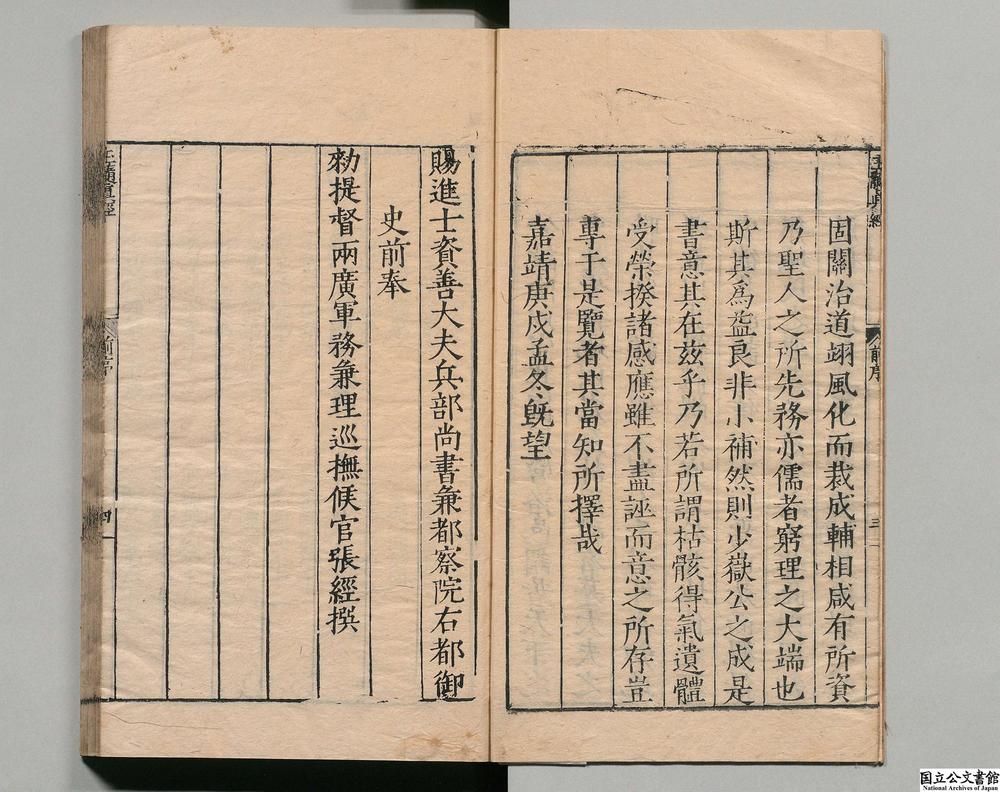 固關治道翊風化而裁成輔相咸有所資
乃聖人之所先務亦儒者窮理之大端也
斯其為益良非小補然則少嶽公之成是
書意其在茲乎乃若所謂枯骸得氣遺體
受榮揆諸感應雖不盡誣而意之所存豈
專于是覽者其當知所擇哉
嘉靖庚戌孟冬既望
前序
三
賜進士資善大夫兵部尚書兼都察院右都御
史前奉
勑提督兩廣軍務兼理巡撫候官張經撰
前序
四
国立公文書館
National Archives of Japan